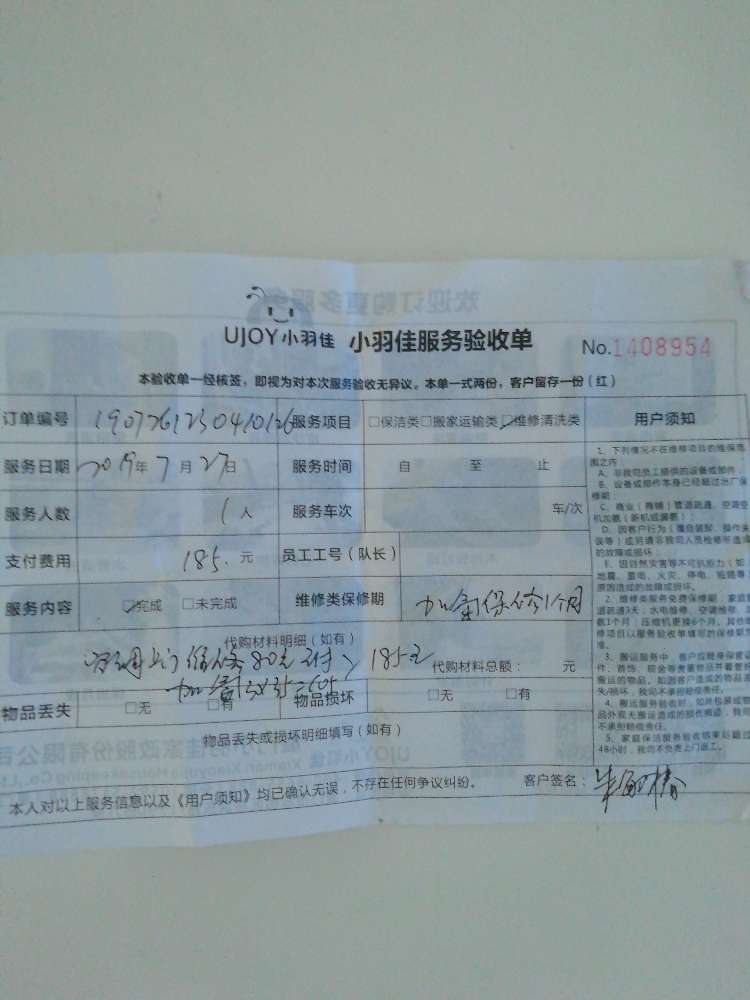 UJOY小羽佳 小羽佳服务验收单 No.1408954
本验收单一经核签，即视为对本次服务验收无异议。本单一式两份，客户留存一份（红）
订单编号 1907261230410126 服务项目 □保洁类□搬家运输类☑维修清洗类 用户须知
服务日期 2019年7月27日 服务时间 自 至 止
服务人数 1人 服务车次 车/次
支付费用 185.元 员工工号（队长）
服务内容 ☑完成 □未完成 维修类保修期 加氟保修1个月
代购材料明细（如有）
空调上门维修80元 185元 代购材料总额： 元
加氟3×35=105
物品丢失 □无 □有 物品损坏 □无 □有
物品丢失或损坏明细填写（如有）
本人对以上服务信息以及《用户须知》均已确认无误，不存在任何争议纠纷。 客户签名：
1、下列情况不在维修项目的维保范
围之内
A、非我司员工提供的设备或部件
B、设备或部件本身已经超过出厂保
修期
C、商业（商铺）管道疏通、空调空
机加氨（新机或漏氨）
D、因客户行为
误等）或另请非我司人员检修所造成
的故障或损坏
E、因自然灾害等不可抗拒力（如
地震、雷电、火灾、停电、短路等
原因造成的故障或损坏。
2、维修类服务免费保修期：家庭管
道疏通3天；水电维修、空调维修、
氨1个月；压缩机更换6个月。其他维
修项目以服务验收单填写的保修期
准。
3、搬运服务中，客户应就身保管证
件、首饰、现金等贵重物品并看管
搬运的物品。如因客户造成的物品丢
失/损坏，我司不承担赔偿责任。
4、搬运服务验收时，如非包装或物
品外观无搬运造成的损伤痕迹，我司
不承担赔偿责任。
5、家庭保洁服务验收结束后超过
48小时，我司不负责上门返工。
欢迎订购更多服务
UJOY小羽佳